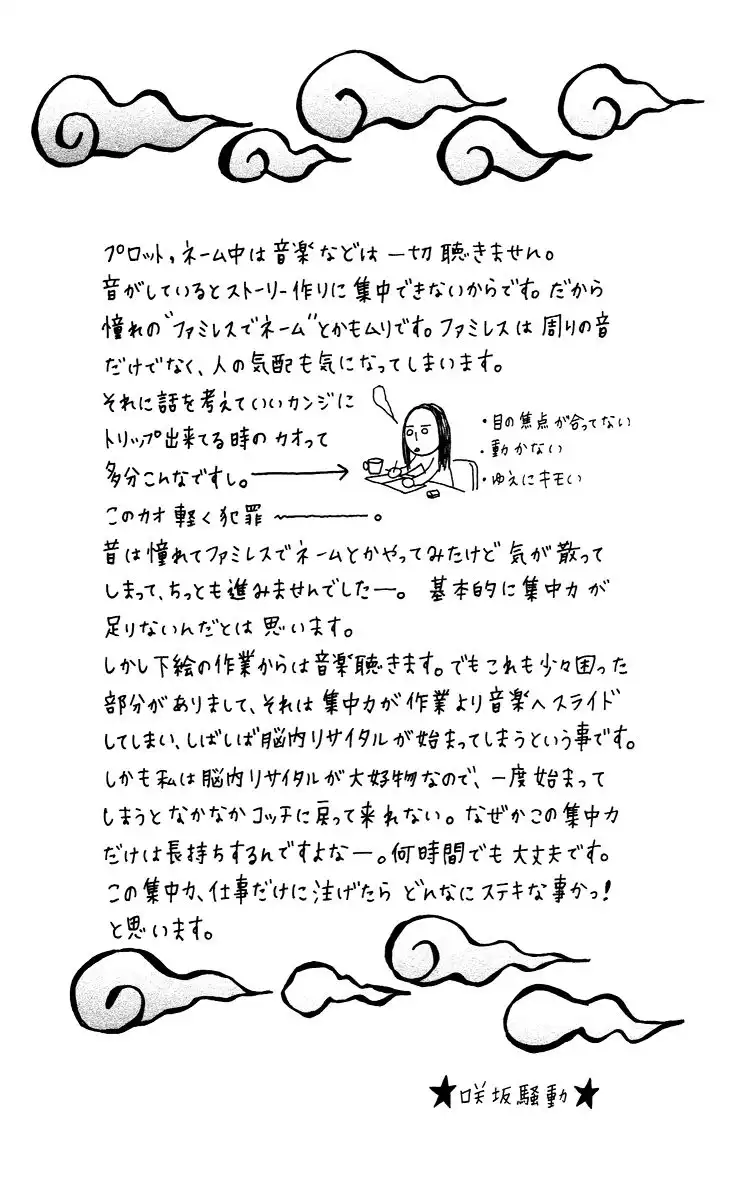 プロット,ネーム中は音楽などは一切聴きません。
音がしているとストーリー作りに集中できないからです。だから
憧れの"ファミレスでネーム"とかもムリです。ファミレスは周りの音
だけでなく、人の気配も気になってしまいます。
それに話を考えていいカンジに
トリップ出来てる時のカオって
多分こんなですし。
・目の焦点が合ってない
・動かない
・ゆえにキモい
このカオ軽く犯罪〜。
昔は憧れてファミレスでネームとかやってみたけど気が散って
しまって、ちっとも進みませんでしたー。基本的に集中力が
足りないんだとは思います。
しかし下絵の作業からは音楽聴きます。でもこれも少々困った
部分がありまして、それは集中力が作業より音楽へスライド
してしまい、しばしば脳内リサイタルが始まってしまうという事です。
しかも私は脳内リサイタルが大好物なので、一度始まって
しまうとなかなかコッチに戻って来れない。なぜかこの集中力
だけは長持ちするんですよなー。何時間でも大丈夫です。
この集中力、仕事だけに注げたらどんなにステキな事かっ!
と思います。
★咲坂騒動★